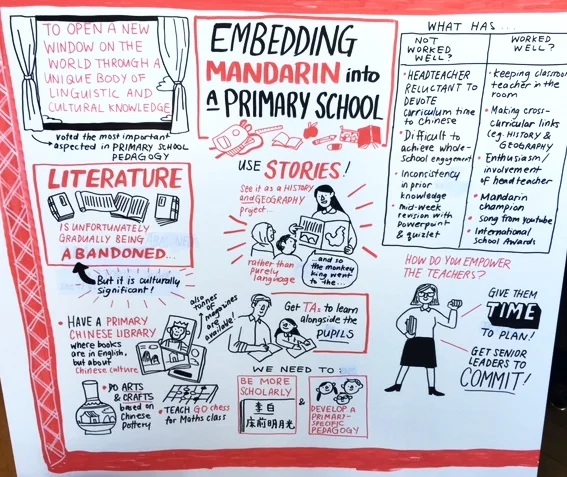 TO OPEN A NEW
WINDOW ON THE
WORLD THROUGH A
UNIQUE BODY OF
LINGUISTIC AND
CULTURAL KNOWLEDGE
voted the most important
aspected in PRIMARY SCHOOL
PEDAGOGY
EMBEDDING
MANDARIN into
A PRIMARY SCHOOL
WHAT HAS...
NOT
WORKED
WELL?
HEADTEACHER
RELUCTANT TO
DEVOTE
curriculum time
to Chinese
Difficult to
achieve whole-
school engagement
Inconsistency
in prior
knowledge
mid-week
revision with
powerpoint
& quizlet
WORKED
WELL?
keeping classroom
teacher in the
room
Making cross-
curricular links
(eg. HISTORY &
GEOGRAPHY
Enthusiasm/
involvement
of head teacher
Mandarin
champion
song from youtube
International
school Awards
LITERATURE
IS UNFORTUNATELY
GRADUALLY BEING
ABANDONED...
But it is culturally
significant!
USE STORIES!
See it as a HISTORY
and GEOGRAPHY
project...
rather than
purely
language
...and so
the monkey
king went to
the...
HAVE A PRIMARY
CHINESE LIBRARY
where books
are in English,
but about
Chinese culture
also
tonnes
of
magazines
are
available!
DO ARTS
& CRAFTS
based on
Chinese
Pottery
TEACH GO chess
for Maths class
Get TAs to learn
alongside the
PUPILS
WE NEED TO:
BE MORE
SCHOLARLY
李白
床前明月光
&
DEVELOP A
PRIMARY-
SPECIFIC
PEDAGOGY
HOW DO YOU EMPOWER
THE TEACHERS?
GIVE THEM
TIME
TO PLAN!
GET SENIOR
LEADERS TO
COMMIT!